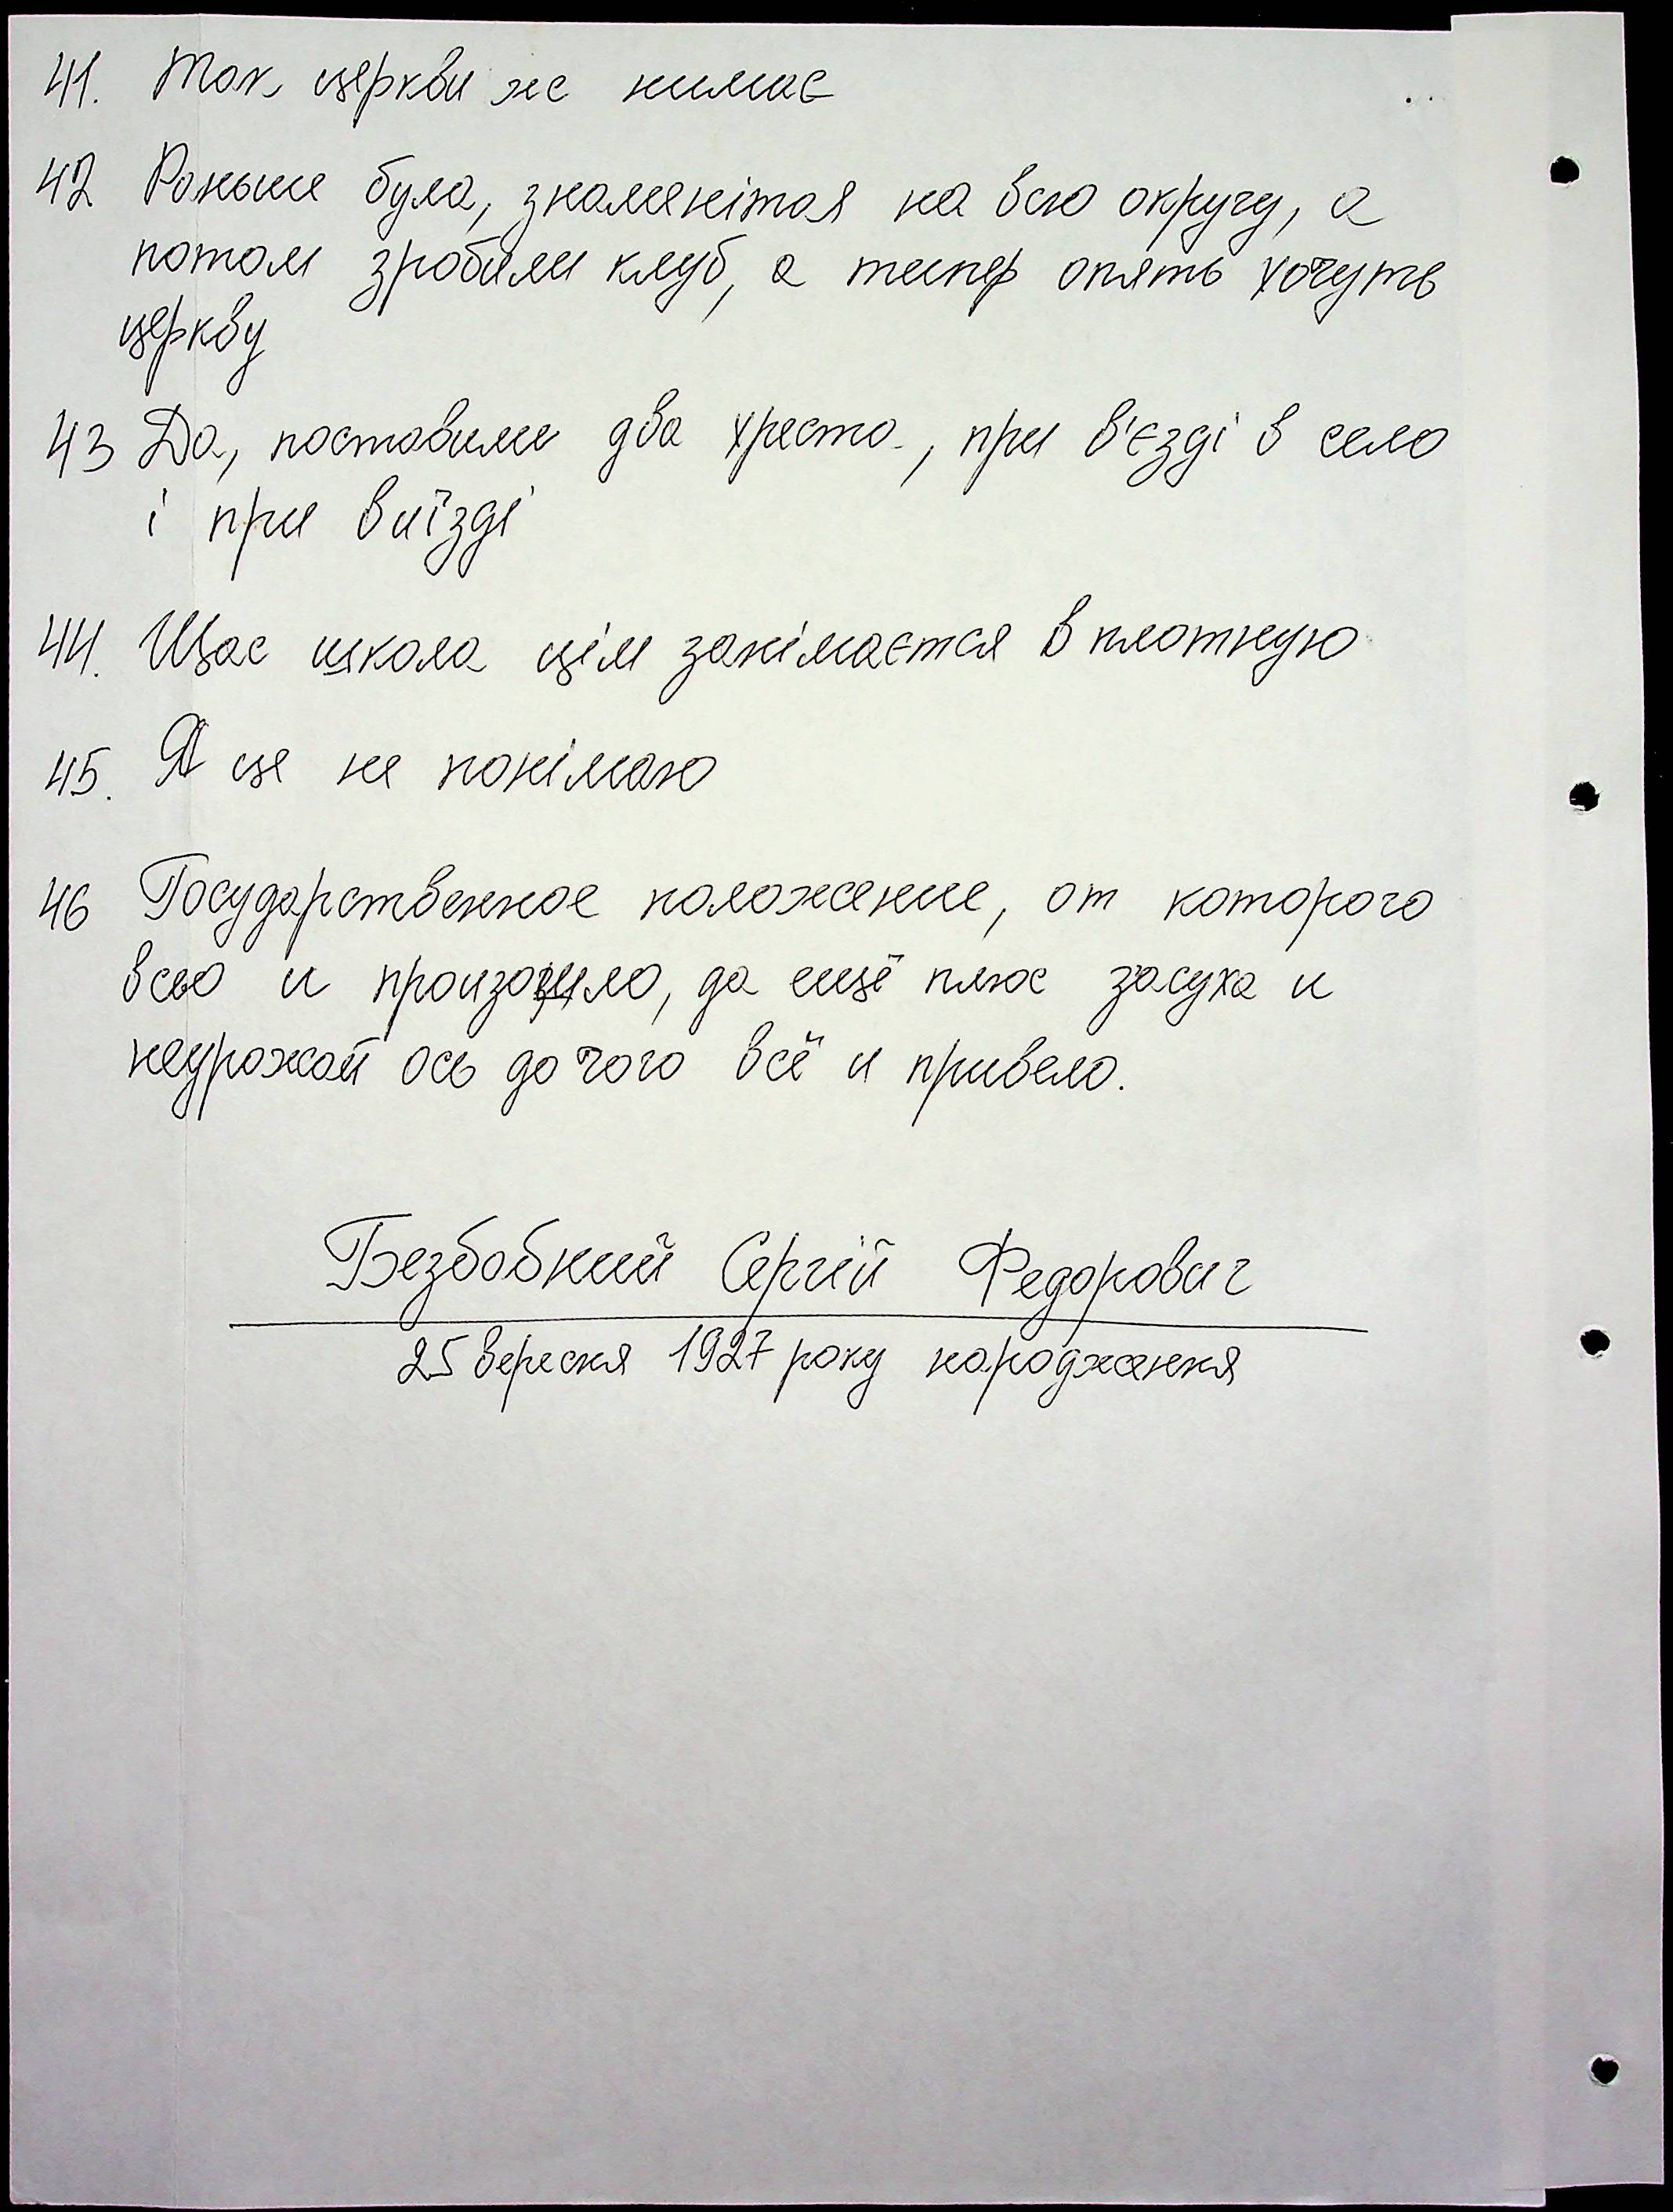 41. Так, церкви же нимає
42 Раньше була, знаменітая на всю округу, а
потом зробили клуб, а тепер опять хочуть
церкву
43 Да, поставили два хреста, при в'єзді в село
і при виїзді
44. Щас школа цім занімается в плотную
45. Я це не понімаю
46 Государственное положение, от которого
всьо и произошло, да ещё плюс засуха и
неурожай ось до чого всё и привело.
Безбобний Сергій Федорович
25 вересня 1927 року народження